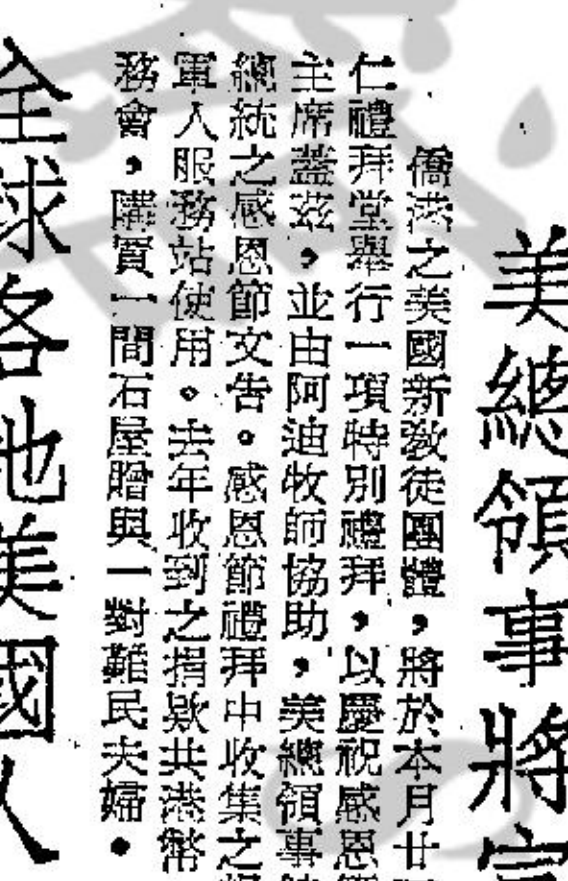 美總領事將宣
僑港之美國新教徒團體，將於本月廿
仁禮拜堂舉行一項特別禮拜，以慶祝感恩
主席蓋茲，並由阿迪牧師協助，美總領事
總統之感恩節文告。感恩節禮拜中收集之
軍人服務站使用。去年收到之捐款共港幣
務會，購買一間石屋贈與一對難民夫婦。
全球各地美國人